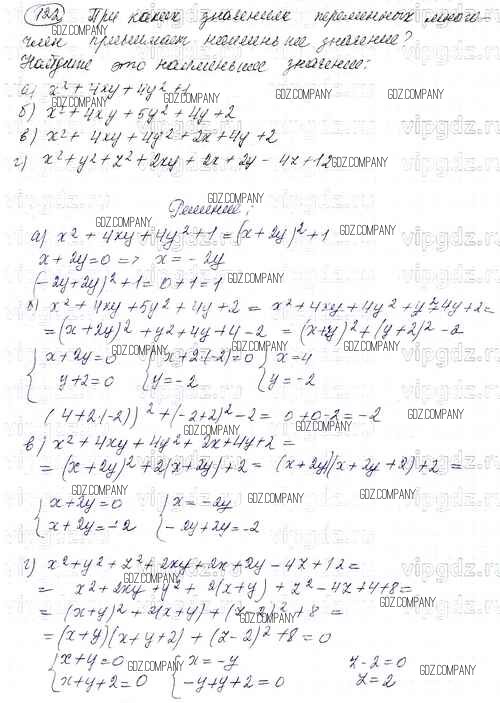 122 При каких значениях переменных много-
член принимает наименьшее значение?
Найдите это наименьшее значение:
а) x² + 4xy + 4y² + 1
б) x² + 4xy + 5y² + 4y + 2
в) x² + 4xy + 4y² + 2x + 4y + 2
г) x² + y² + z² + 2xy + 2x + 2y - 4z + 12
Решение:
а) x² + 4xy + 4y² + 1 = (x + 2y)² + 1
x + 2y = 0 => x = -2y
(-2y+2y)² + 1 = 0 + 1 = 1
б) x² + 4xy + 5y² + 4y + 2 = x² + 4xy + 4y² + y² + 4y + 2 =
= (x + 2y)² + y² + 4y + 4 - 2 = (x+2y)² + (y+2)² - 2
{ x + 2y = 0 { x + 2·(-2) = 0 { x = 4
y + 2 = 0 y = -2 y = -2
(4 + 2·(-2))² + (-2+2)² - 2 = 0 + 0 - 2 = -2
в) x² + 4xy + 4y² + 2x + 4y + 2 =
= (x + 2y)² + 2(x + 2y) + 2 = (x + 2y)(x + 2y + 2) + 2 =
{ x + 2y = 0 { x = -2y
x + 2y = -2 -2y + 2y = -2
г) x² + y² + z² + 2xy + 2x + 2y - 4z + 12 =
= x² + 2xy + y² + 2(x + y) + z² - 4z + 4 + 8 =
= (x + y)² + 2(x + y) + (z - 2)² + 8 =
= (x + y)(x + y + 2) + (z - 2)² + 8 = 0
{ x + y = 0 { x = -y z - 2 = 0
x + y + 2 = 0 -y + y + 2 = 0 z = 2
GDZ.COMPANY
vipgdz.ru